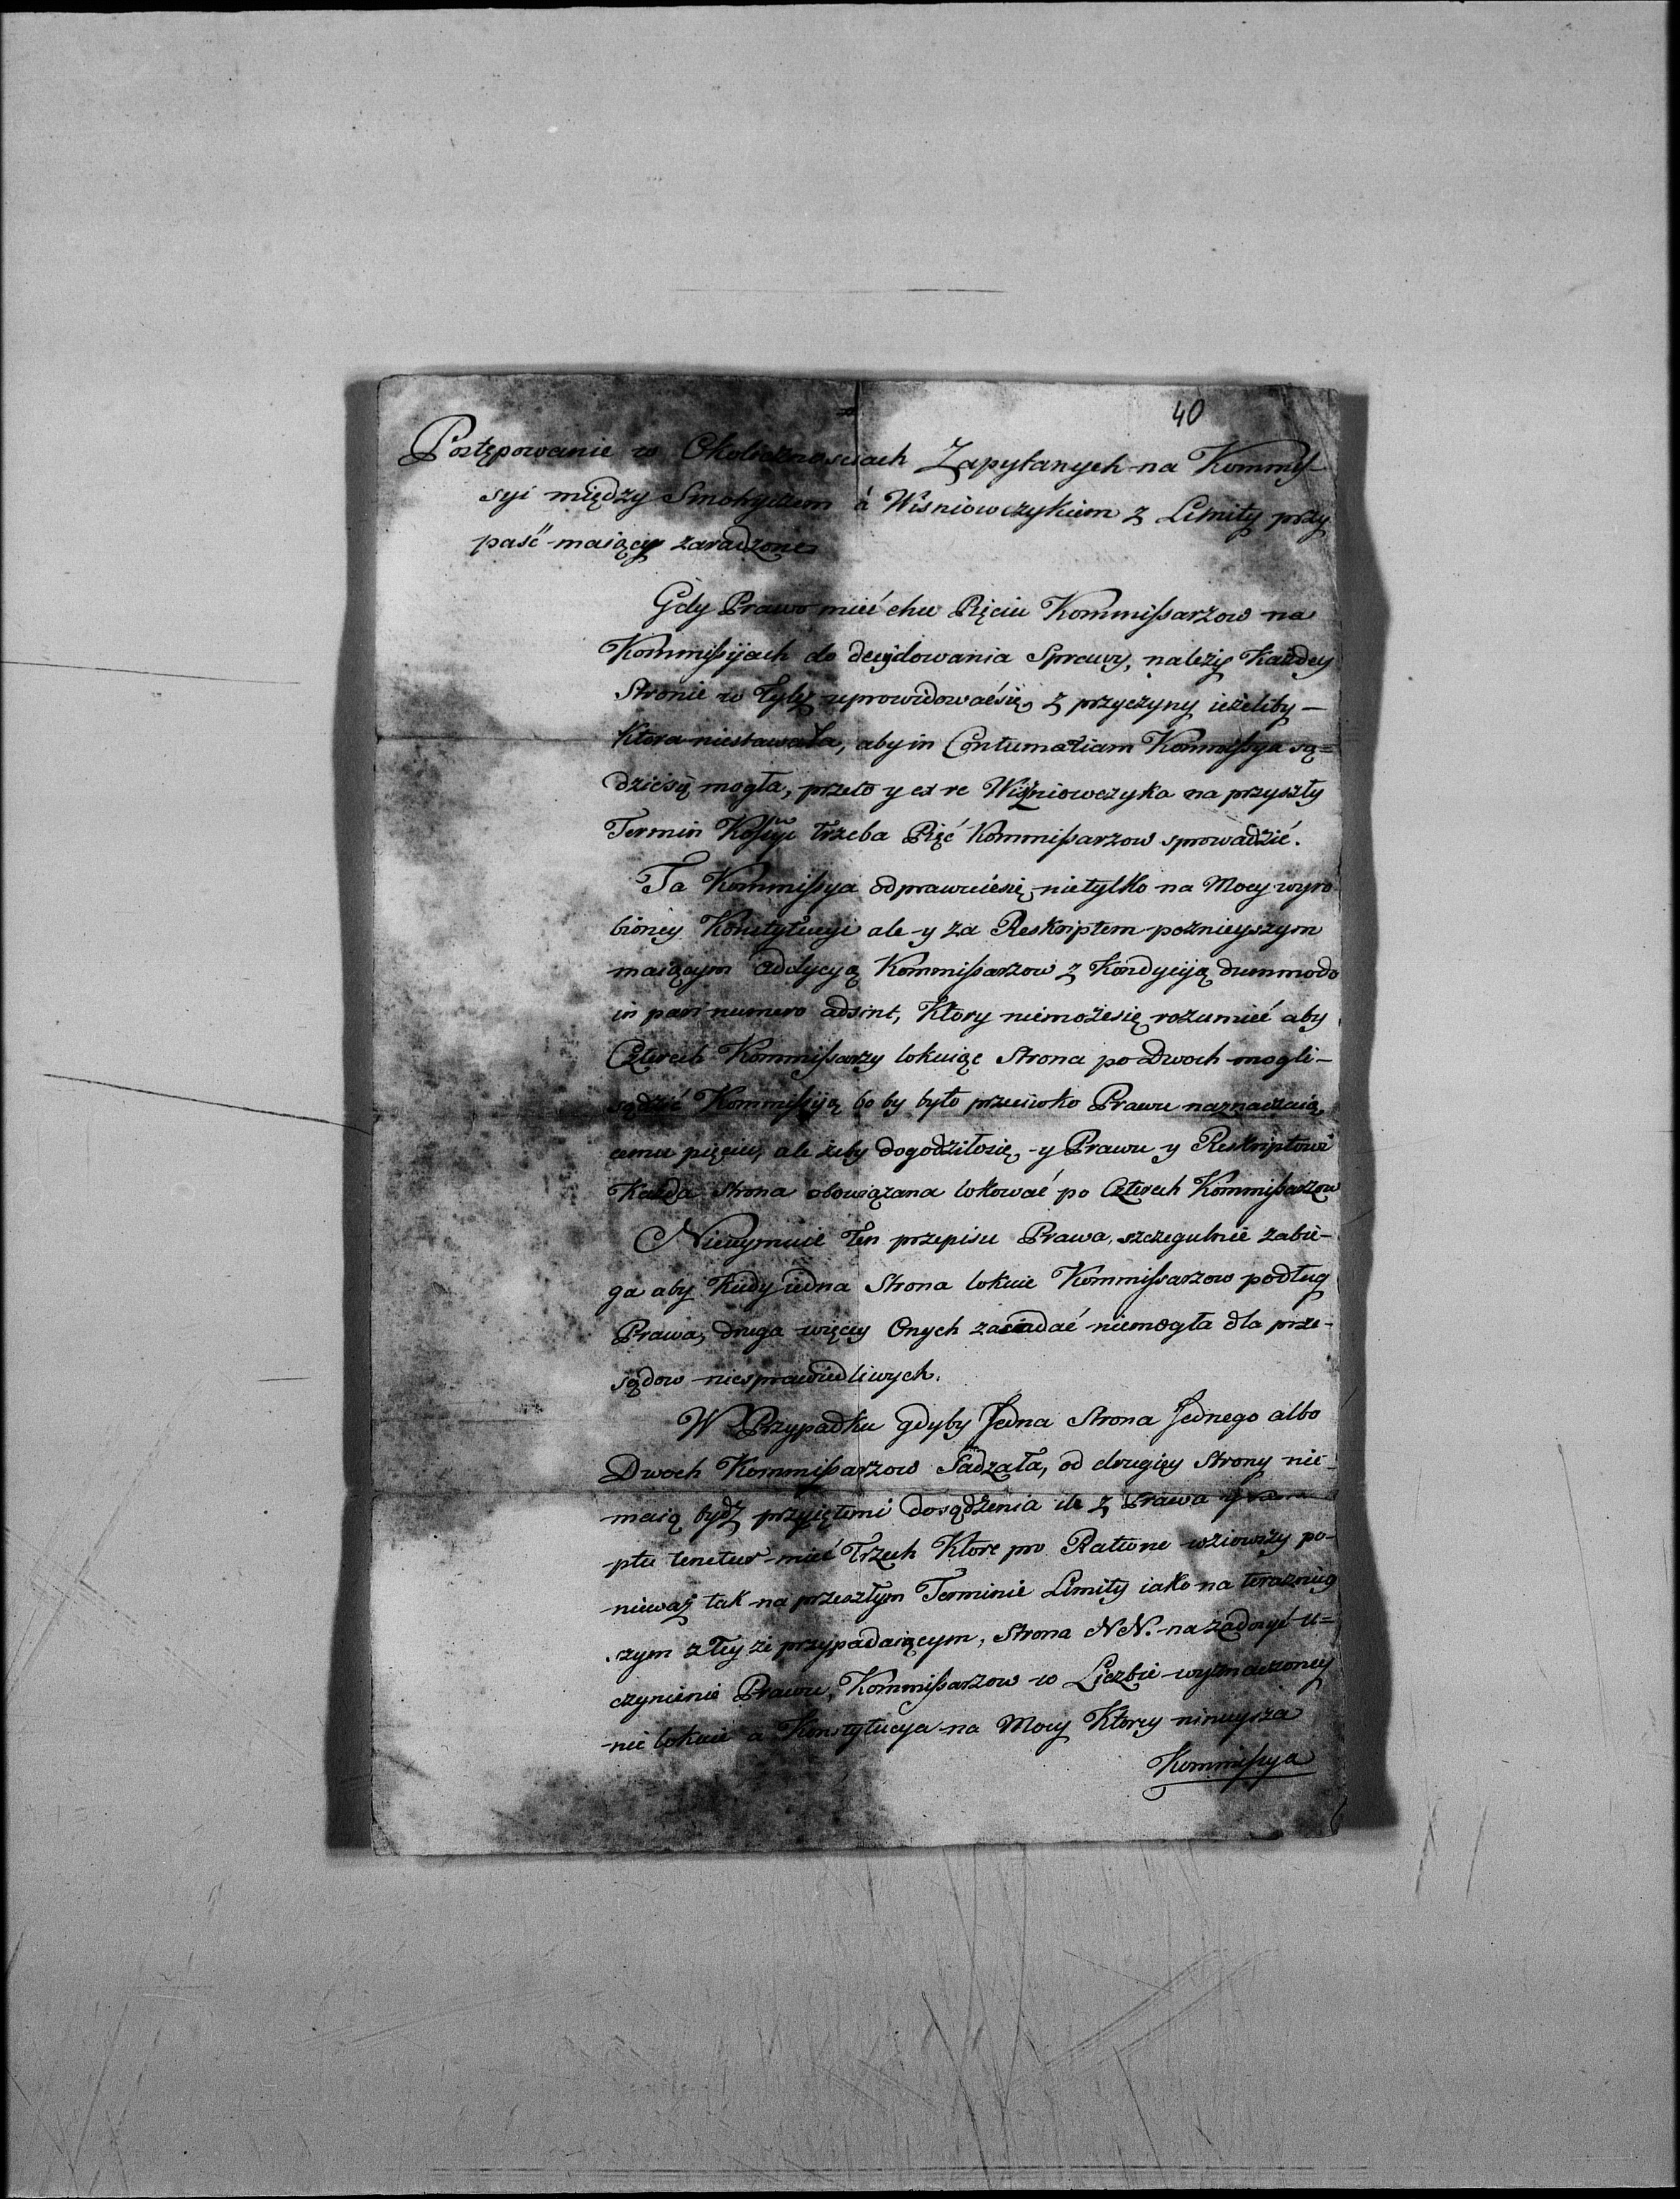 40
Postępowanie w Okolicznosciach Zapytanych na Kommis-
syi między Smohyckem á Wisniowczykiem z Limity przy
paść maiącey zaradzone
Gdy Prawo mieć chce Pięciu Kommissarzow na
Kommissyiach do decydowania Sprawy, należy Kazdey
Stronie w tylez uprowidowaćsię, z przyczyny ieżeliby –
Ktora niestawała, aby in Contumatiam Kommissya są=
dzićsię mogła, przeto y ex re Wiśniowczyka na przyszły
Termin trzeba Pięć Kommissarzow sprowadzić.
Ta Kommissya odprawuiesię nietylko na Mocy wyro-
bioney Konstytucyi ale y za Reskriptem poznieyszym
maiącym addycyą Kommissarzow z Kondycyią dummodo
in pari numero adsint, Ktory niemożesię rozumieć aby
Czterech Kommissarzy lokuiąc Strona po Dwoch mogli –
sądzić Kommissyią, bo by było przeciwko Prawu naznaczaią,
cemu pięciu, ale żeby dogodziłosię y Prawu y Reskriptowi
Każda Strona obowiązana lokować po Czterech Kommissarzow
Nieuymuie ten przepisu Prawa, szczegulnie zabie-
ga aby Kiedy iedna Strona lokuie Kommissarzow podług
Prawa, druga więcey Onych zasiadać niemogła dla prze-
sądow niesprawiedliwych.
W Przypadku gdyby Jedna Strona Jednego albo
Dwoch Kommissarzow Sadzała, od drugiey Strony nie-
maią bydź przyiętemi dosądzenia ile z Prawa y
ptu tenetur mieć Trzech Ktore pro Ratione wziowszy po-
niewaz tak na przeszłym Terminie Limity iako na teraznieg
szym z Tey że przypadaiącym, Strona NN. na zadosyć u=
czynienie Prawu, Kommissarzow w Liczbie wyznaczoney
nie lokuie a Konstytucya na Mocy Ktorey ninieysza
Kommissya